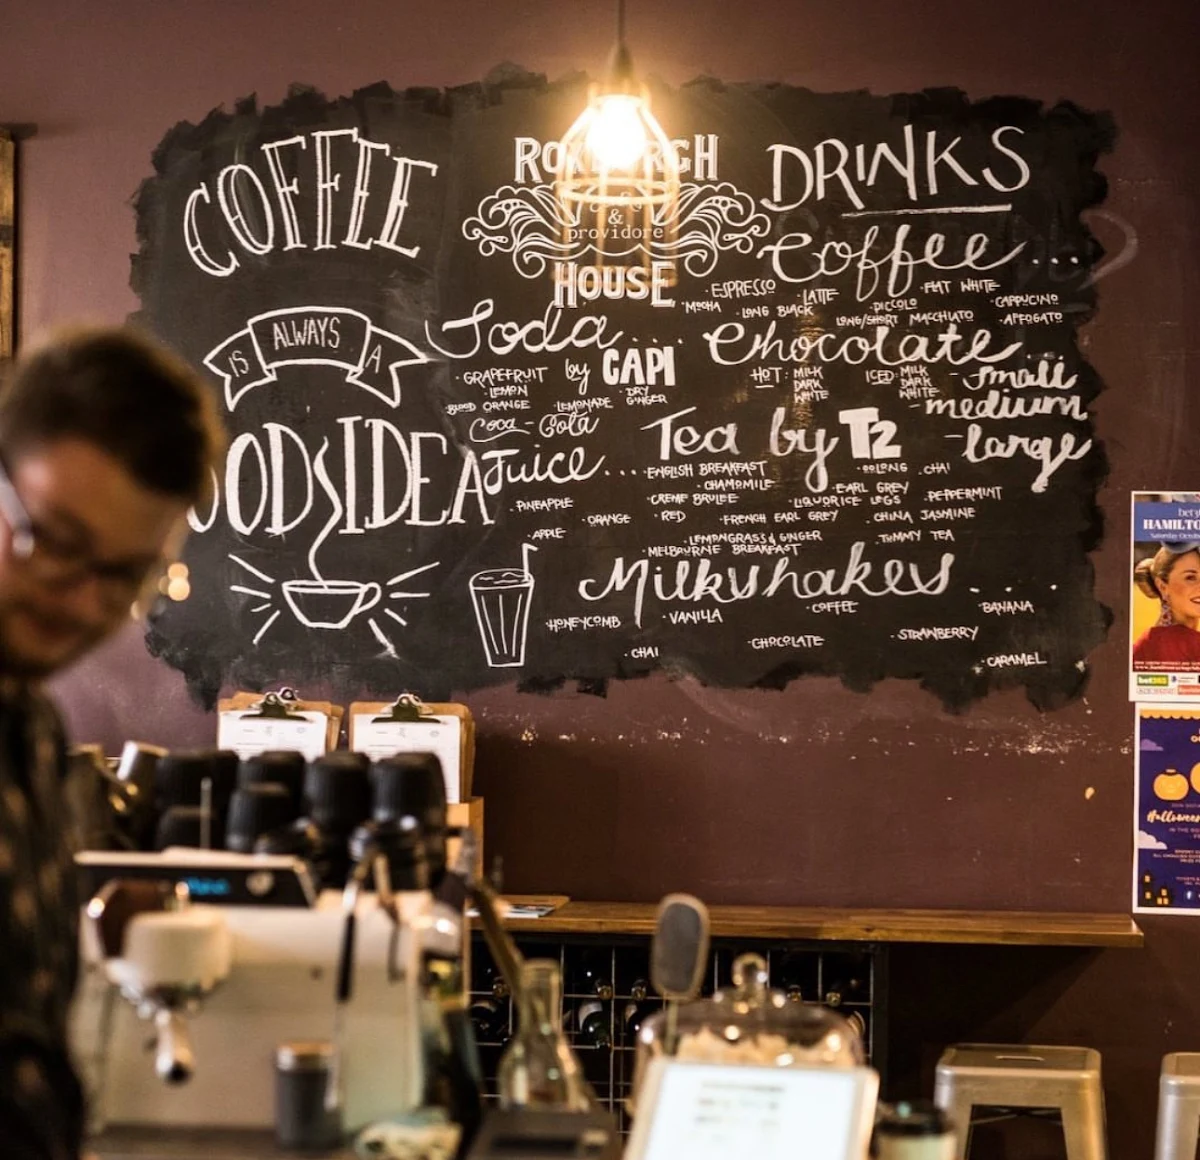 COFFEE
IS ALWAYS A
GOOD IDEA
ROXBURGH
&
providore
HOUSE
DRINKS
Coffee...
· ESPRESSO · LATTE · FLAT WHITE
· MOCHA · LONG BLACK · PICCOLO · CAPPUCINO
LONG/SHORT MACCHIATO · AFFOGATO
Soda....
by CAPI
· GRAPEFRUIT
· LEMON · DRY GINGER
· BLOOD ORANGE · LEMONADE
Coca-Cola
Chocolate...
HOT: MILK
DARK
WHITE
ICED: MILK
DARK
WHITE
- small
- medium
- large
Juice....
· PINEAPPLE
· ORANGE
· APPLE
Tea by T2
· ENGLISH BREAKFAST · OOLONG · CHAI
· CHAMOMILE · EARL GREY
· CREME BRULEE · LIQUORICE LEGS · PEPPERMINT
· RED · FRENCH EARL GREY · CHINA JASMINE
· LEMONGRASS & GINGER · TUMMY TEA
· MELBOURNE BREAKFAST
Milkshakes...
· HONEYCOMB · VANILLA · COFFEE · BANANA
· CHAI · CHOCOLATE · STRAWBERRY
· CARAMEL
HAMILTO
Saturday Octob
bet365
Halloween